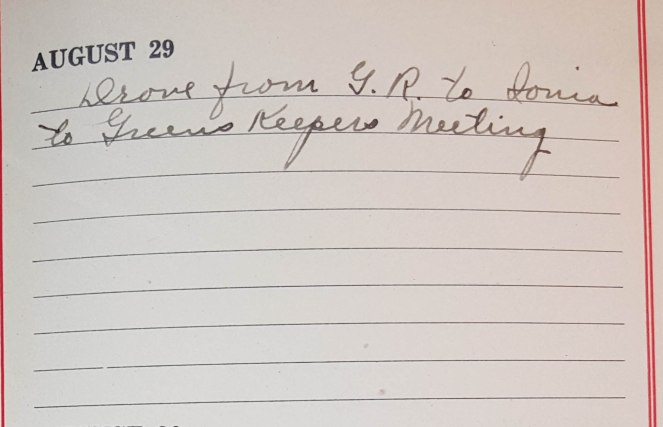 AUGUST 29
Drove from G. R. to Ionia
to Greens Keepers Meeting